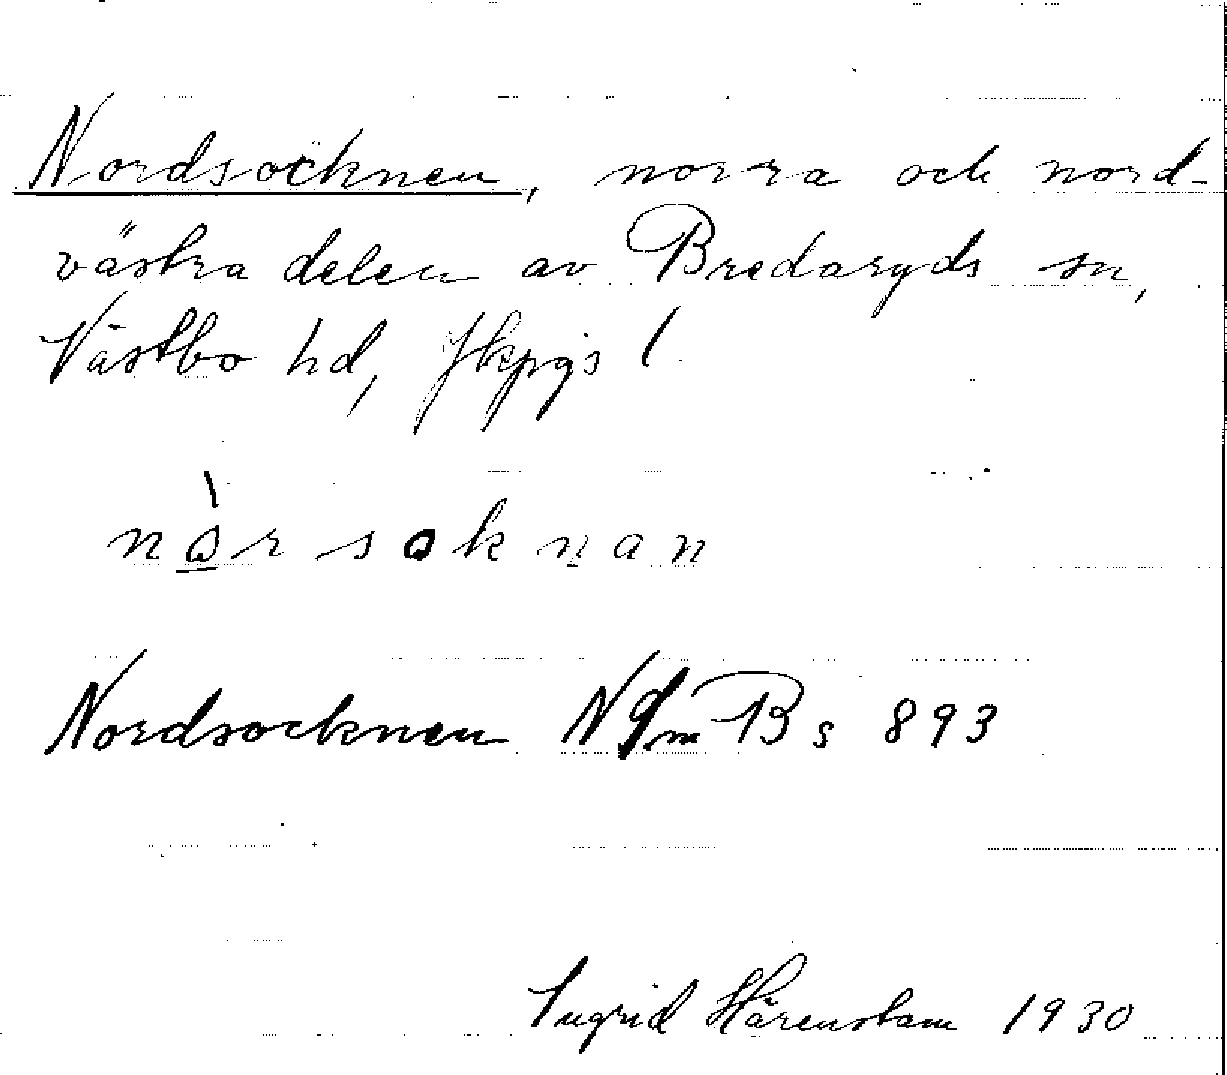 Nordsocknen, norra och nord-
västra delen av Bredaryds sn,
Västbo hd, Jkpgs l
nò̱rsoknan
Nordsocknen NSm B s 893
Ingrid Härenstam 1930